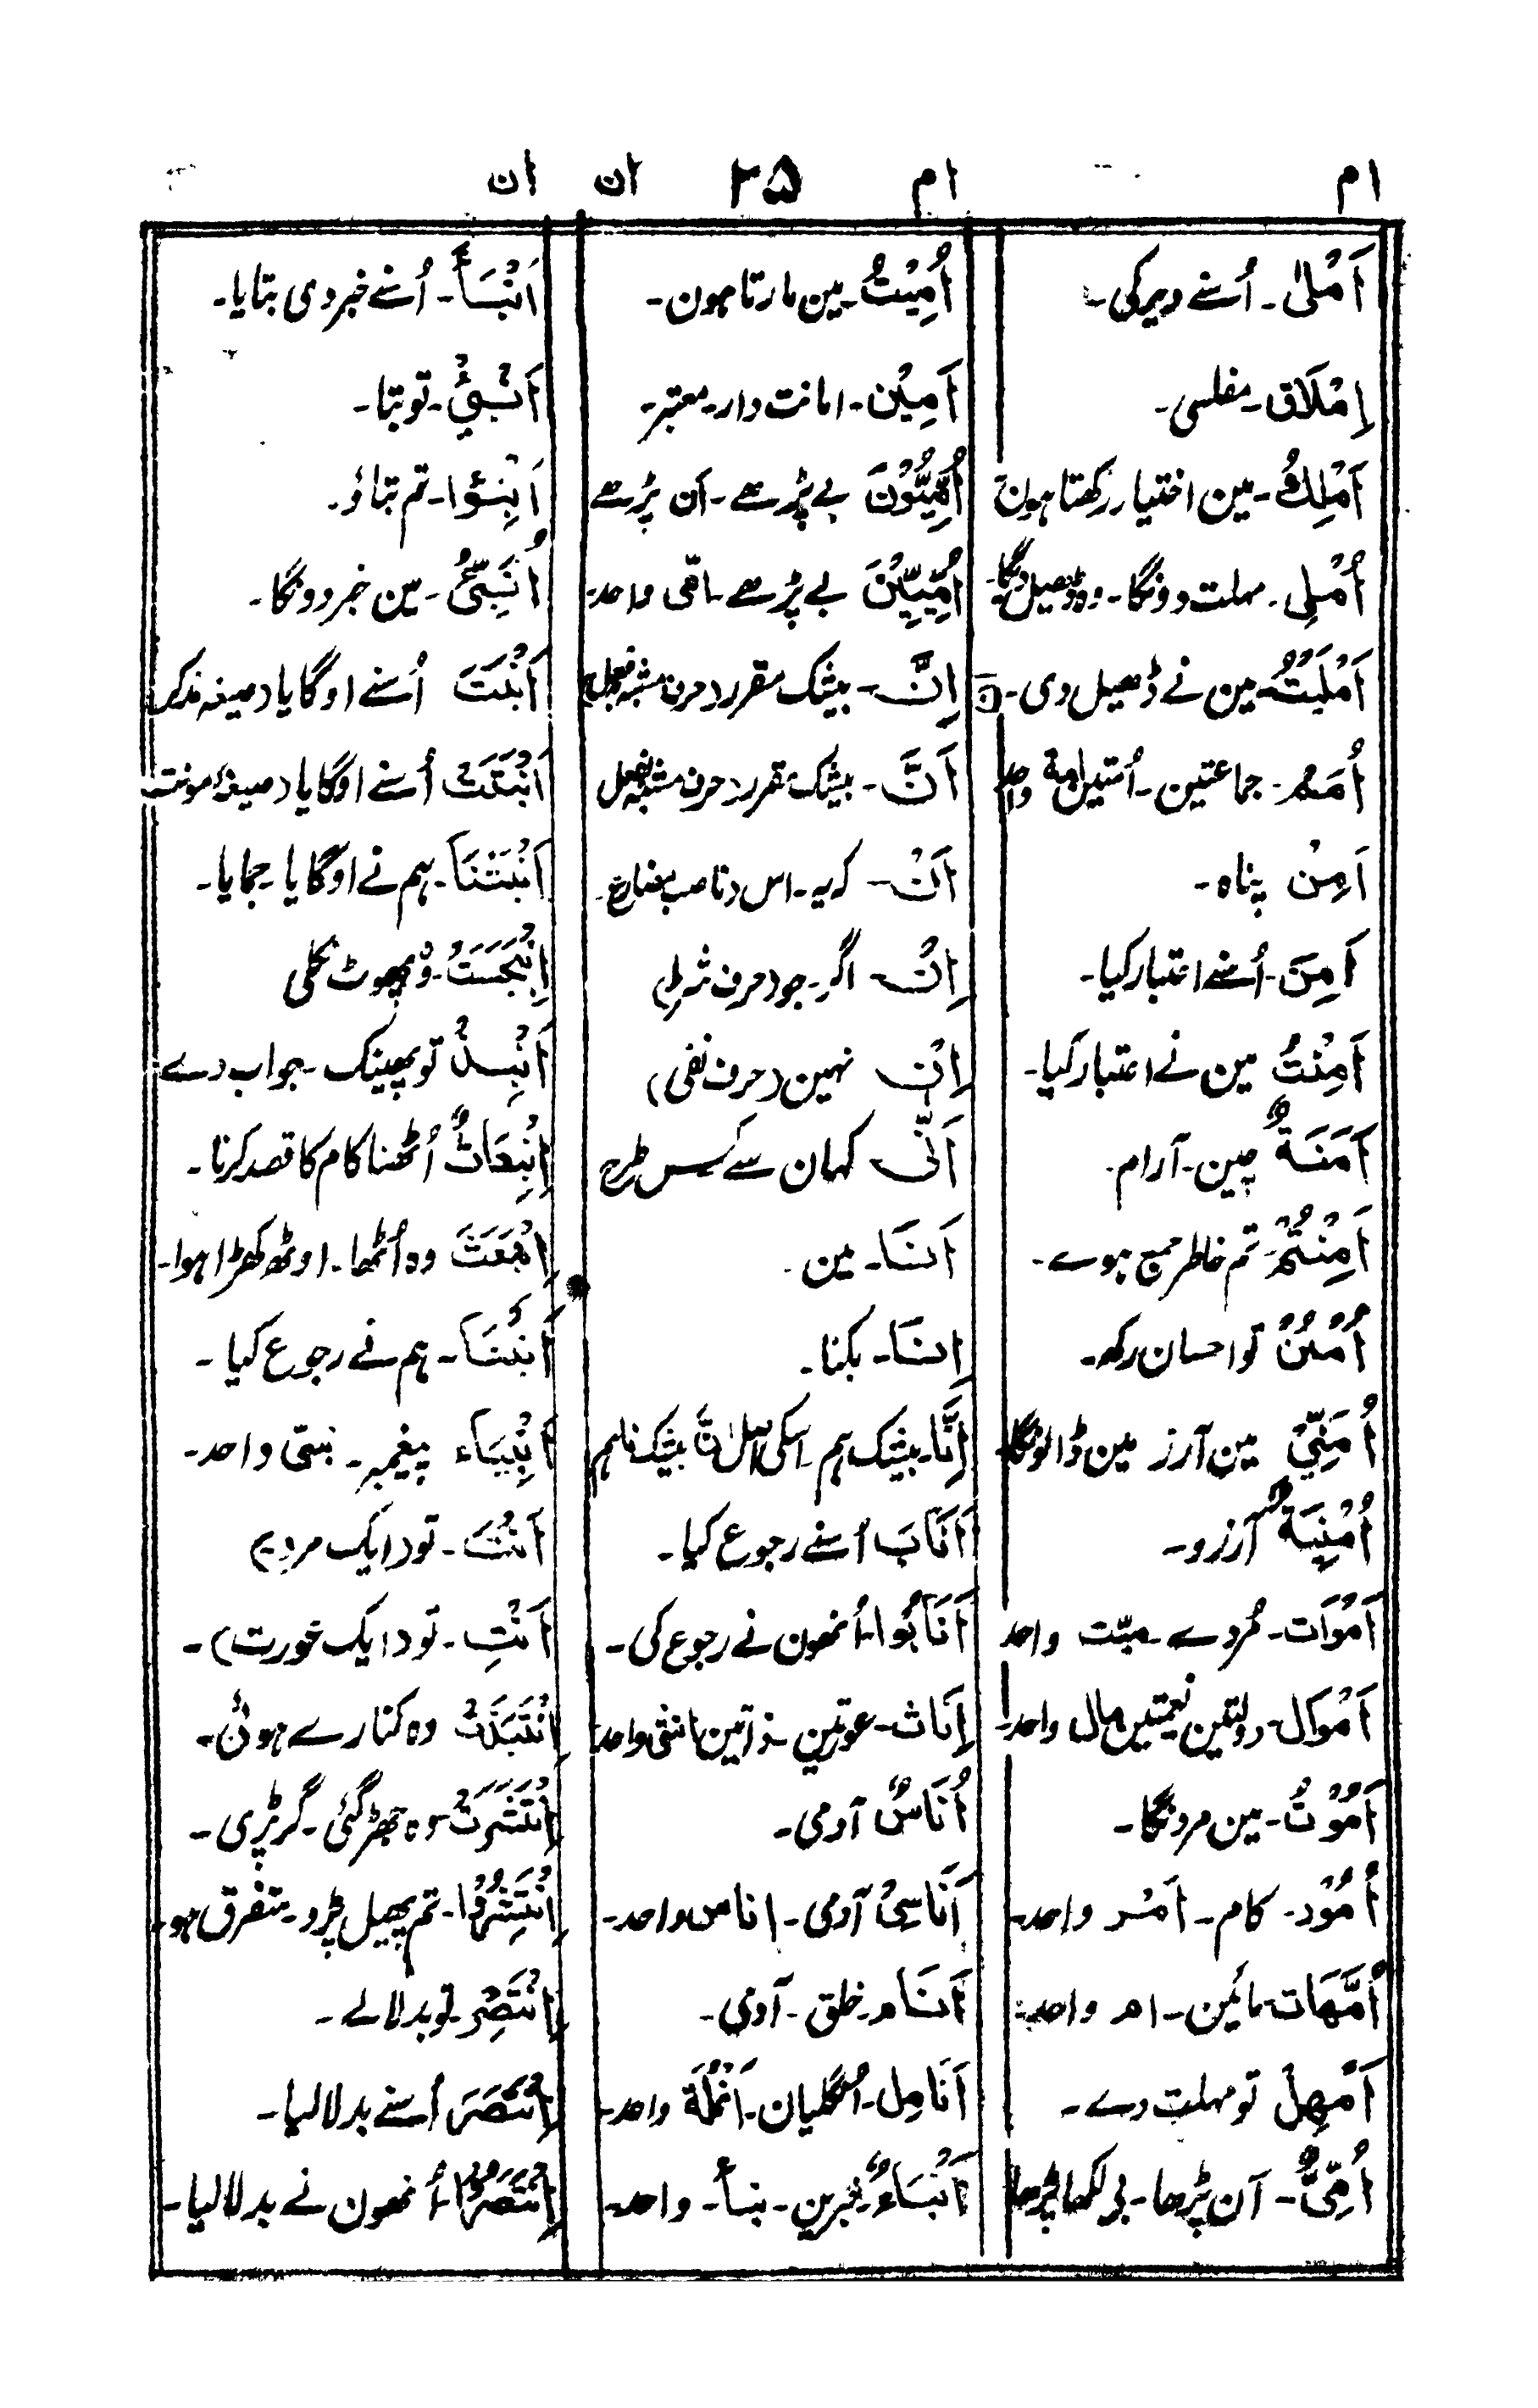 ام ام ۲۵ ان ان
اَمْلیٰ۔ اُسنے دیر کی۔
اِمْلَاق۔ مفلسی۔
اَمْلِكُ۔ مین اختیار رکھتا ہون
اُمْلِی۔ مہلت دونگا۔ وہ ڈھیل دیگا۔
اَمْلَیْتُ۔ مین نے ڈھیل دی۔
اُمَمْ۔ جماعتین۔ اُمتین امة واحد
اَمِنْ پناہ۔
اَمِنَ۔ اُسنے اعتبار کیا۔
اَمِنْتُ مین نے اعتبار کیا۔
اَمَنَةٌ چین۔ آرام۔
اَمِنْتُمْ تم خاطر جمع ہوے۔
اُمْنُنْ تو احسان رکھ۔
اُمَنِّیْ مین آرز مین ڈالونگا۔
اُمْنِیَةٌ آرزو۔
اَمْوَات۔ مُردے۔ میّت واحد
اَمْوَال۔ دولتین نعمتین مال واحد۔
اَمُوْتُ۔ مین مرونگا۔
اُمُوْر۔ کام۔ اَمْر واحد۔
اُمَّهَات مائین۔ ام واحد۔
اَمْهِلْ تو مہلت دے۔
اُمِّیٌّ۔ اَن پڑھا۔ بے لکھا پڑھا
اُمِیْتُ۔ مین مارتا ہون۔
اَمِیْن۔ امانت دار۔ معتبر۔
اُمِّیُّوْنَ بے پڑھے۔ اَن پڑھے
اُمِّیِّیْنَ بے پڑھے۔ اُمّی واحد۔
اِنَّ۔ بیشک مقرر (حرف مشبہ بفعل)
اَنَّ۔ بیشک مقرر (حرف مشبہ بفعل
اَنْ۔ کہ یہ۔ اس (ناصب مضارع۔
اِنْ۔ اگر۔ جو (حرف شرط)
اِنْ نہین (حرف نفی)
اَنّٰی کہان سے کس طرح
اَنَا۔ مین۔
اِنَا۔ پکنا۔
اِنَّا۔ بیشک ہم۔ اسکی اصل اِنَّ بیشک نا ہم
اَنَابَ اُسنے رجوع کیا۔
اَنَابُوا۔ اُنھون نے رجوع کی۔
اِنَاث۔ عورتین۔ ذاتین انثی واحد۔
اُنَاسٌ آدمی۔
اَنَاسِیَّ آدمی۔ اناس واحد۔
اَنَام۔ خلق۔ آدمی۔
اَنَامِل۔ اُنگلیان۔ اَنْمُلَة واحد۔
اَنْبَاءٌ۔ خبرین۔ نبأ۔ واحد۔
اَنْبَأَ۔ اُسنے خبر دی بتایا۔
اَنْبِئْ۔ تو بتا۔
اَنْبِئوا۔ تم بتاؤ۔
اُنَبِّئُ۔ مین خبر دونگا۔
اَنْبَتَ اُسنے اوگایا (صیغہ مذکر
اَنْبَتَتْ اُسنے اوگایا (صیغۂ مونث
اَنْبَتْنَا۔ ہم نے اوگایا۔ جمایا۔
اِنْبَجَسَتْ۔ وہ پھوٹ نکلی
اَنْبِذْ تو پھینک۔ جواب دے۔
اِنْبِعَاثٌ اُٹھنا کام کا قصد کرنا۔
اِنْبَعَثَ وہ اُٹھا۔ اوٹھ کھڑا ہوا۔
اَنَبْنَا۔ ہم نے رجوع کیا۔
اَنْبِیَاء پیغمبر۔ نبی واحد۔
اَنْتَ۔ تو (ایک مرد)
اَنْتِ۔ تو (ایک عورت)۔
اِنْتَبَذَتْ وہ کنارے ہوئی۔
اِنْتَثَرَتْ وہ جھڑ گئی۔ گر پڑی۔
اِنْتَشِرُوْا۔ تم پھیل پڑو۔ متفرق ہو۔
اِنْتَصِرْ۔ تو بدلا لے۔
اِنْتَصَرَ اُسنے بدلا لیا۔
اِنْتَصَرُوْا۔ اُنھون نے بدلا لیا۔